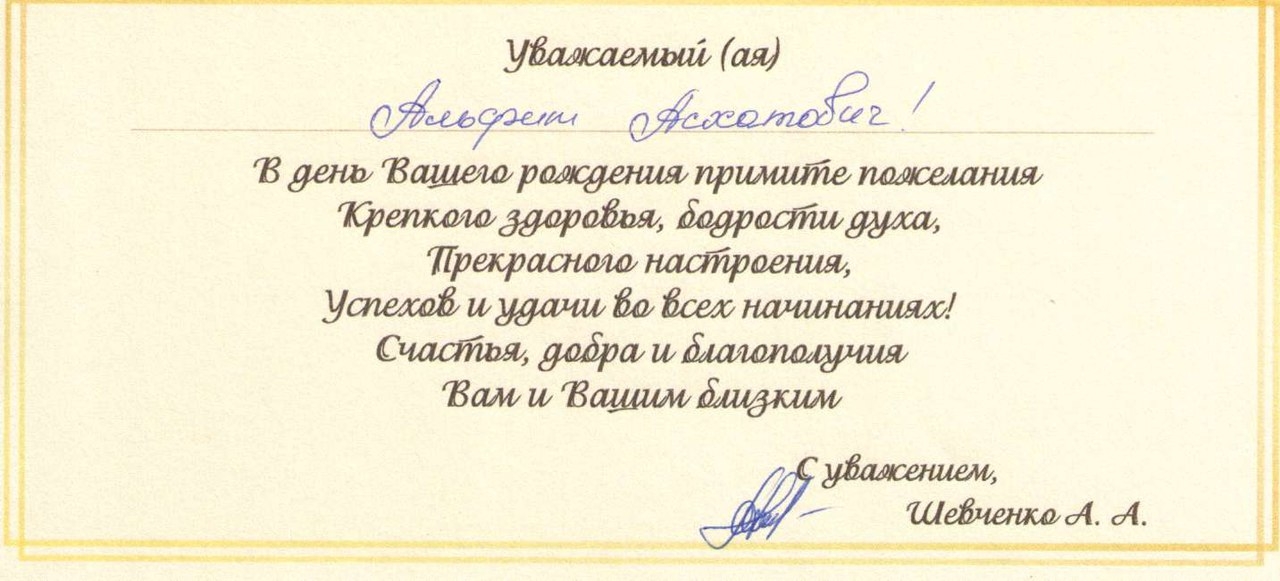 Уважаемый (ая)
Альфрит Асхатович!
В день Вашего рождения примите пожелания
Крепкого здоровья, бодрости духа,
Прекрасного настроения,
Успехов и удачи во всех начинаниях!
Счастья, добра и благополучия
Вам и Вашим близким
С уважением,
Шевченко А. А.